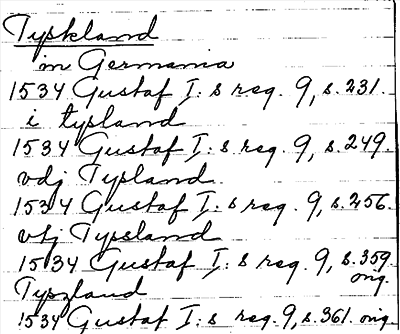 Tyskland
in Germania
1534 Gustaf I:s reg. 9, s. 231.
i typland
1534 Gustaf I:s reg. 9, s. 249.
vdj Typland
1534 Gustaf I:s reg. 9, s. 256.
vtj Tyssland
1534 Gustaf I:s reg. 9, s. 359.
orig.
Tyszland
1534 Gustaf I:s reg. 9, s. 361. orig.